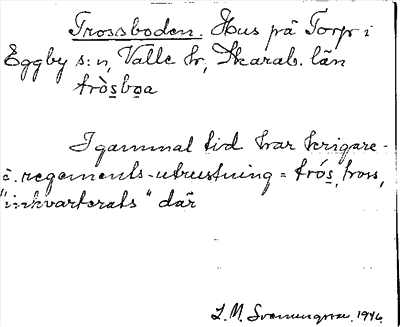 Trossboden. Hus på Torp i
Eggby s:n, Valle hr, Skarab. län
tròs̠boa
I gammal tid har krigare-
o. regements-utrustning = trós̠, tross,
"inkvarterats" där
L. M. Svenungsson. 1946.